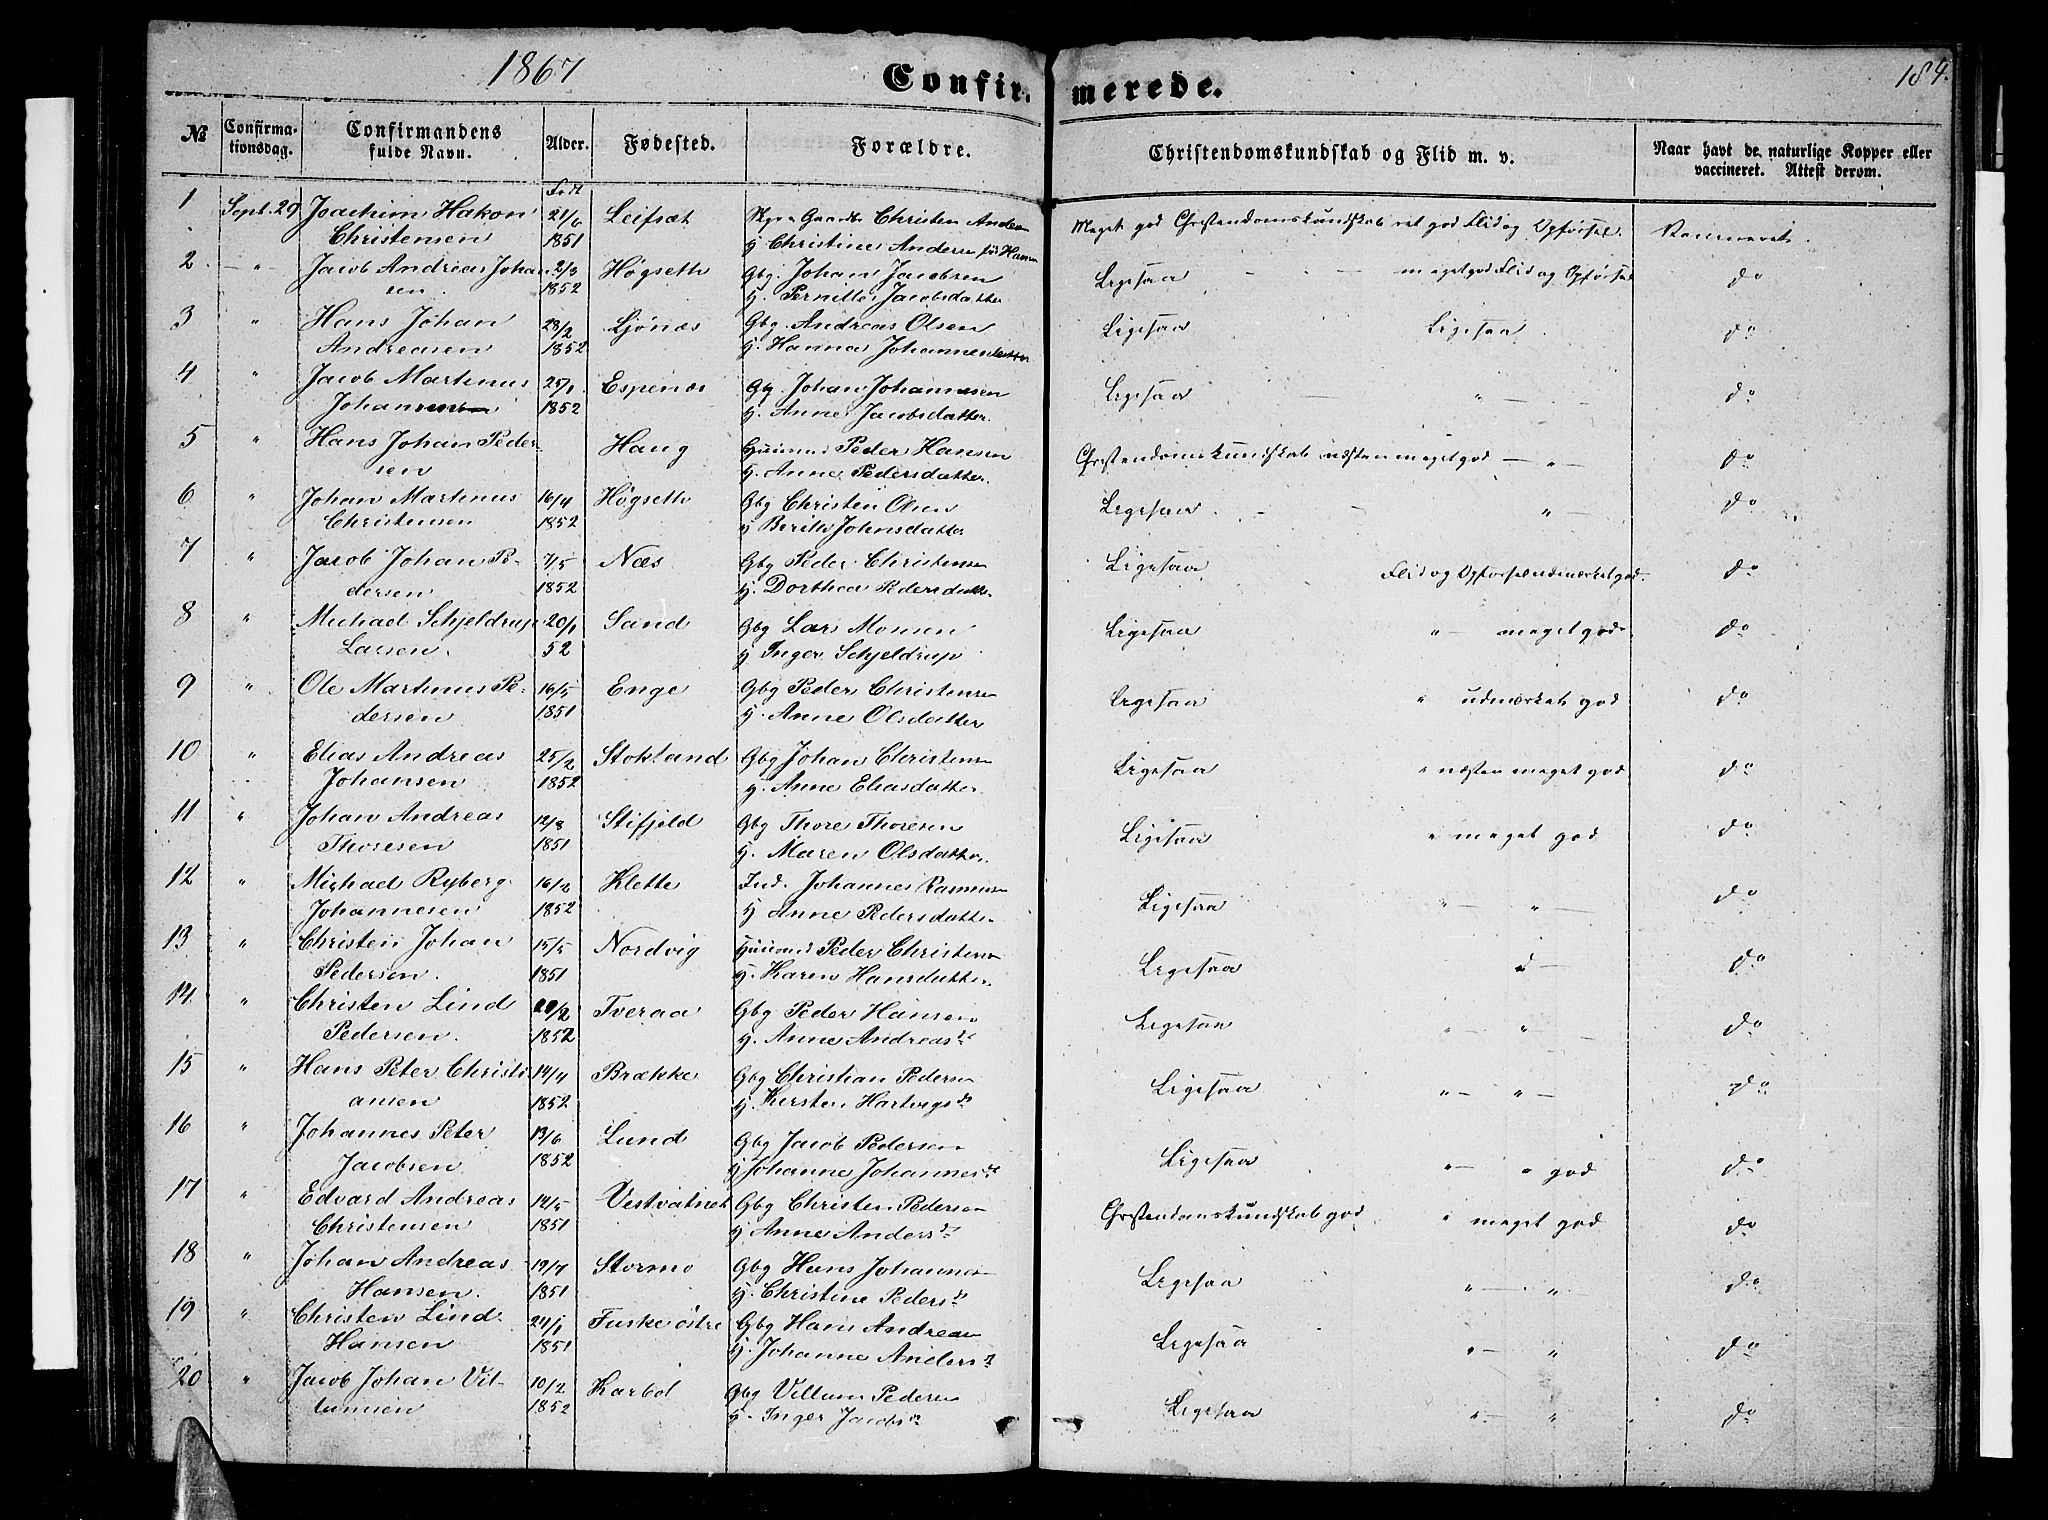 1867
Confir-
merede.
184.
№
Confirma-
tionsdag.
Confirmandens
fulde Navn.
Alder.
Fødested.
Forældre.
Christendomskundskab og Flid m. v.
Naar havt de naturlige Kopper eller
vaccineret. Attest derom.
Født
1 Sept. 29 Joachim Hakon 21/6 Leifsæt Christen Anders Meget god Christendomskundskab ret god Flid og Opførsel. Vaccineret.
Christensen 1851 H. Christine
2 — " — Jacob Andreas Johan 2/3 Høgseth Gbg. Johan Jacobsen Ligesaa — — meget god Flid og Opførsel do
sen. 1852 H. Pernille Jacobsdatter
3 " Hans Johan 28/2 Ljønæs Gbg. Andreas Olsen Ligesaa Ligesaa do
Andreasen 1852 H. Hanna
4 " Jacob Martinus 25/1 Espenæs Gbg Johan Johannesen Ligesaa — " — do
Johansen 1852 H. Anne Jacobsdatter.
5 " Hans Johan Peder- Haug Huusmd Peder Hansen Christendomskundskab næsten meget god — " — do
sen H. Anne Pedersdatter.
6 " Johan Martinus 16/4 Høgseth Gbg Christen Olsen Ligesaa - - " — do
Christensen 1852 H Berith Johnsdatter
7 " Jacob Johan Pe- 7/5 Næs Gbg Peder Christensen Ligesaa Flid og Opførsel udmærket god. do
dersen 1852 H. Dorthea Pedersdatter
8 " Michael Schjeldrup 20/1 Sand Gbg Lars Monsen Ligesaa " — meget god do
Larsen. 52 H Inger Schjeldrup
9 " Ole Martinus Pe- 16/5 Enge Gbg Peder Christensen Ligesaa " udmærket god do
dersen 1851 H. Anne Olsdatter
10 " Elias Andreas 25/2 Stokland Gbg Johan Christensen Ligesaa " næsten meget god do
Johansen 1852 H. Anne Eliasdatter
11 " Johan Andreas 12/8 Stifjeld Gbg Thore Thoresen Ligesaa " meget god do
Thoresen 1851 H. Maren Olsdatter
12 " Michael Ryberg Klette Ind. Johannes Rasmusen Ligesaa " — " — do
Johannesen 1852 H Anne Pedersdatter
13 " Christen Johan 15/5 Nordvig Huusmd Peder Christensen Ligesaa do
Pedersen. 1851 H. Karen Hansdatter
14 " Christen Lind Tveraa Gbg Peder Hansen Ligesaa " — " — do
Pedersen. 1852 H. Anne Andreasdr
15 " Hans Peter Christi- 14/4 Brække Gbg Christian Pedersen Ligesaa " — " — do
ansen 1852 H. Kirsten Hartvigsdr
16 " Johannes Peter 13/6 Lund Gbg Jacob Pedersen Ligesaa " — " god do
Jacobsen 1852 H Johanne Johannesdr
17 " Edvard Andreas 14/5 Vestvatnet Gbg Christen Pedersen Christendomskundskab god " meget god do
Christensen 1851 H Anne Andersdr
18 " Johan Andreas 19/7 Stormo Gbg Hans Johannesen Ligesaa " — " do
Hansen. 1851 H. Christine Pedersdr
19 " Christen Lind 24/1 Fuske østre Gbg Hans Andreasen Ligesaa " — " do
Hansen 1851 H. Johanne Andersdr
20 " Jacob Johan Vil- 10/2 Karbøl Gbg Villum Pedersen Ligesaa " — " do
lumsen 1852 H. Inger Jacobsdr